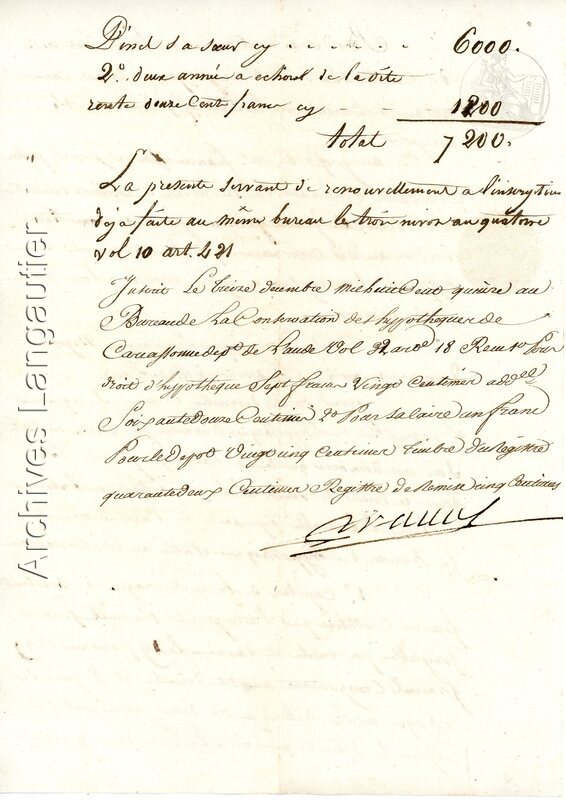 Pinel sa sœur cy . . . . . . . 6000.
2.° deux année a echoir de la dite
rente douze Cent francs cy - - - 1200
total 7200.
La presente servant de renouvellement a l'inscription
deja faite au même bureau le trois nivos an quatorze
vol 10 art. 421
Inscrit Le treize decembre mil huit Cent quinze au
Bureau de La Conservation des hypotheques de
Carcassonne dep.t de Laude Vol 32 art. 18 Reçu 1.° Pour
droit d'hypotheque Sept francs Vingt Centimes add.elle
Soixante douze Centimes 2.° Pour Salaire un franc
Pour le Depot Vingt cinq Centimes timbre du Registre
quarante deux Centimes Registre de Remise cinq Centimes
Archives Langautier